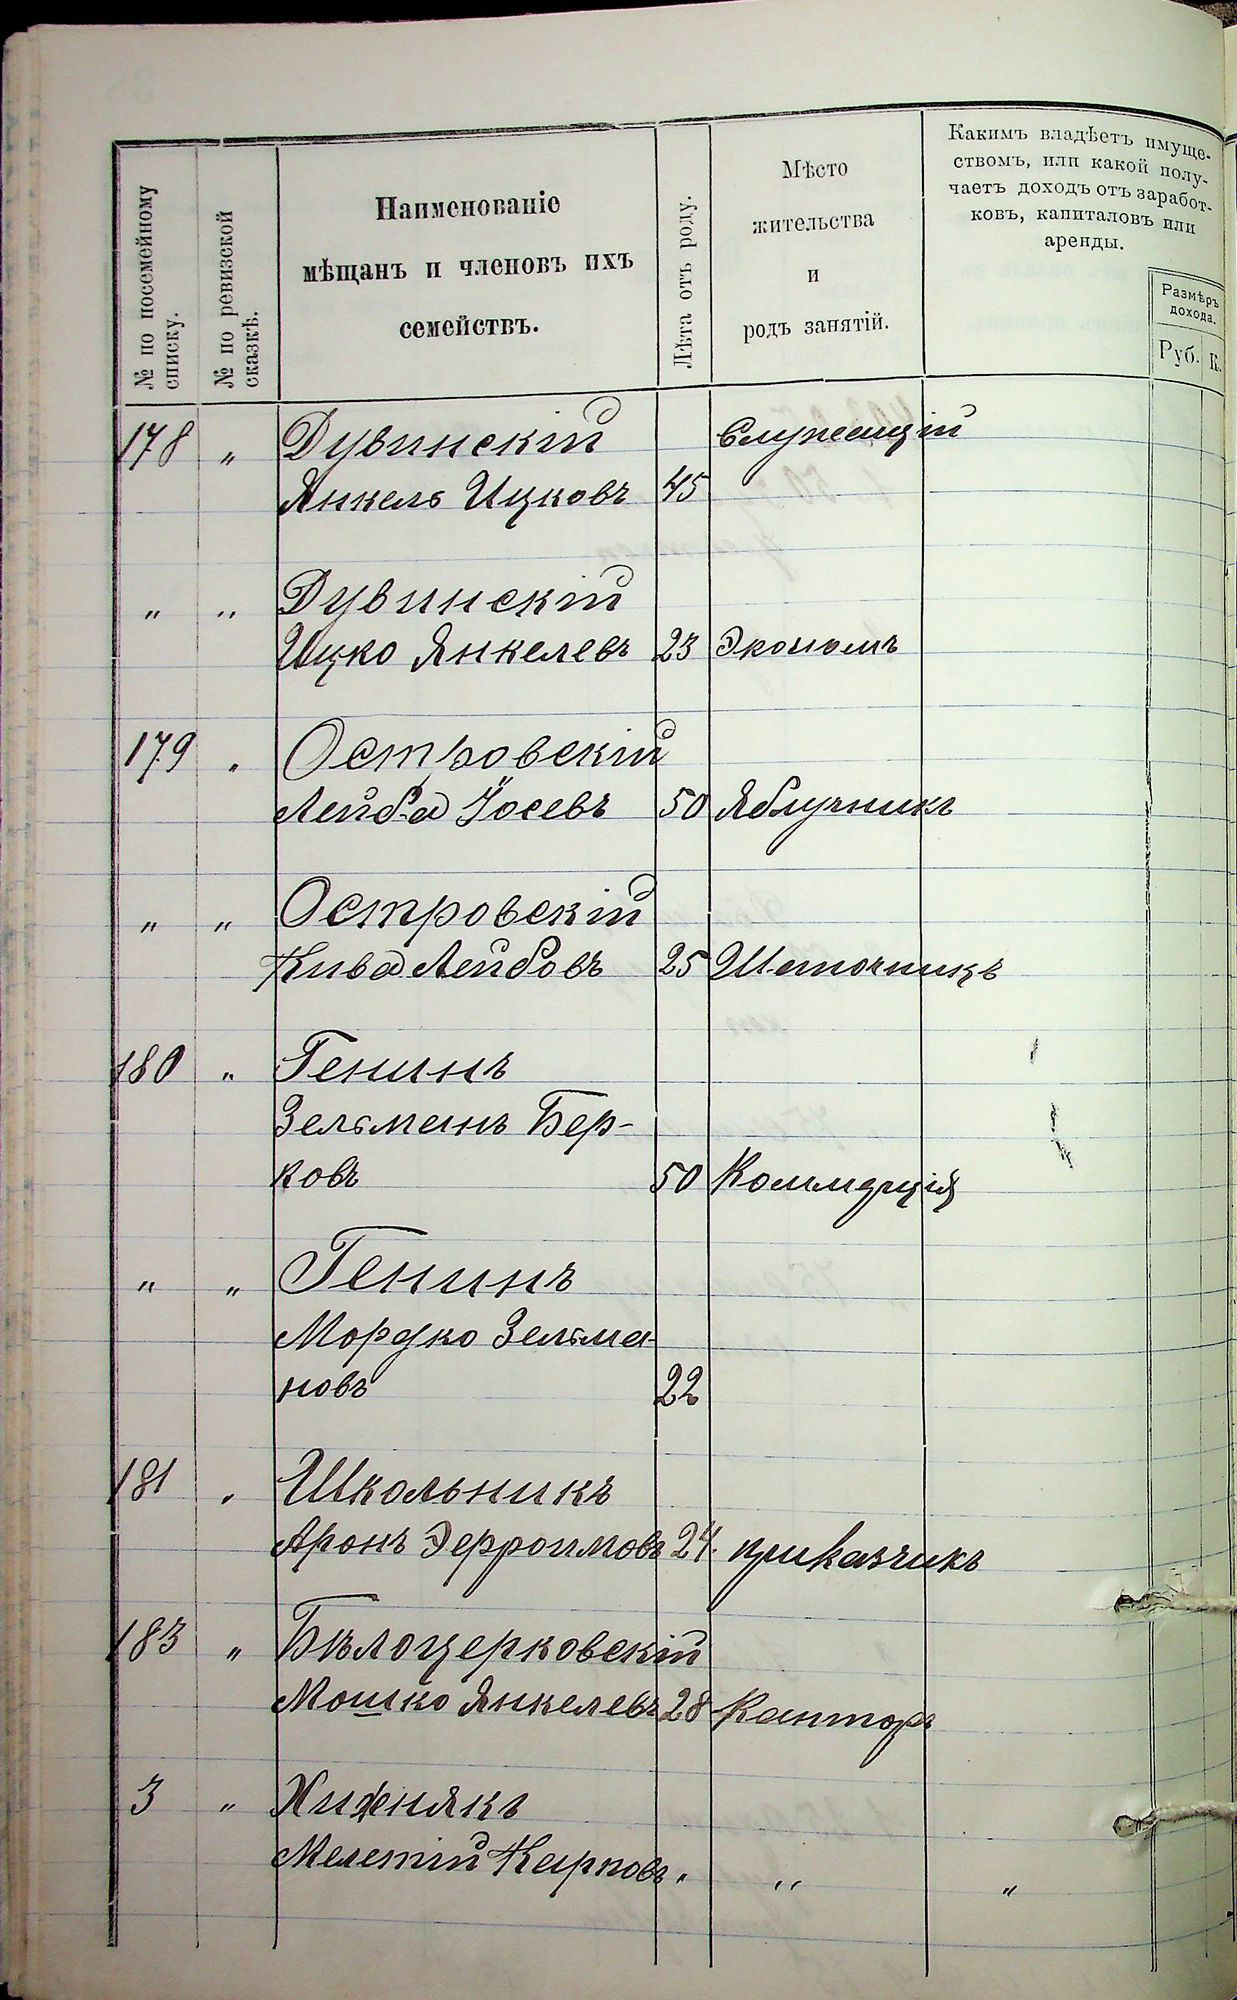 № по посемейному списку.
№ по ревизской сказкѣ.
Наименованіе
мѣщанъ и членовъ ихъ
семействъ.
Лѣта отъ роду.
Мѣсто
жительства
и
родъ занятій.
Какимъ владѣетъ имуще-
ствомъ, или какой полу-
чаетъ доходъ отъ заработ-
ковъ, капиталовъ или
аренды.
Размѣръ
дохода.
Руб. К.
178 „ Дувинскій Служащій
Янкель Ицковъ 45
„ „ Дувинскій
Ицко Янкелевъ 23 Экономъ
179 „ Островскій
Лейба Іосевъ 50 Яблучникъ
„ „ Островскій
Кива Лейбовъ 25
180 „ Генинъ
Зельманъ Бер-
ковъ 50
„ „ Генинъ
Мордко Зельма-
новъ 22
181 „ Школьникъ
Аронъ Эфроимовъ 24. приказчикъ
183 „ Бѣлоцерковскій
Мошко Янкелевъ 28 Канторъ
3 „ Хижнякъ
Мелетій Карповъ „ „ „